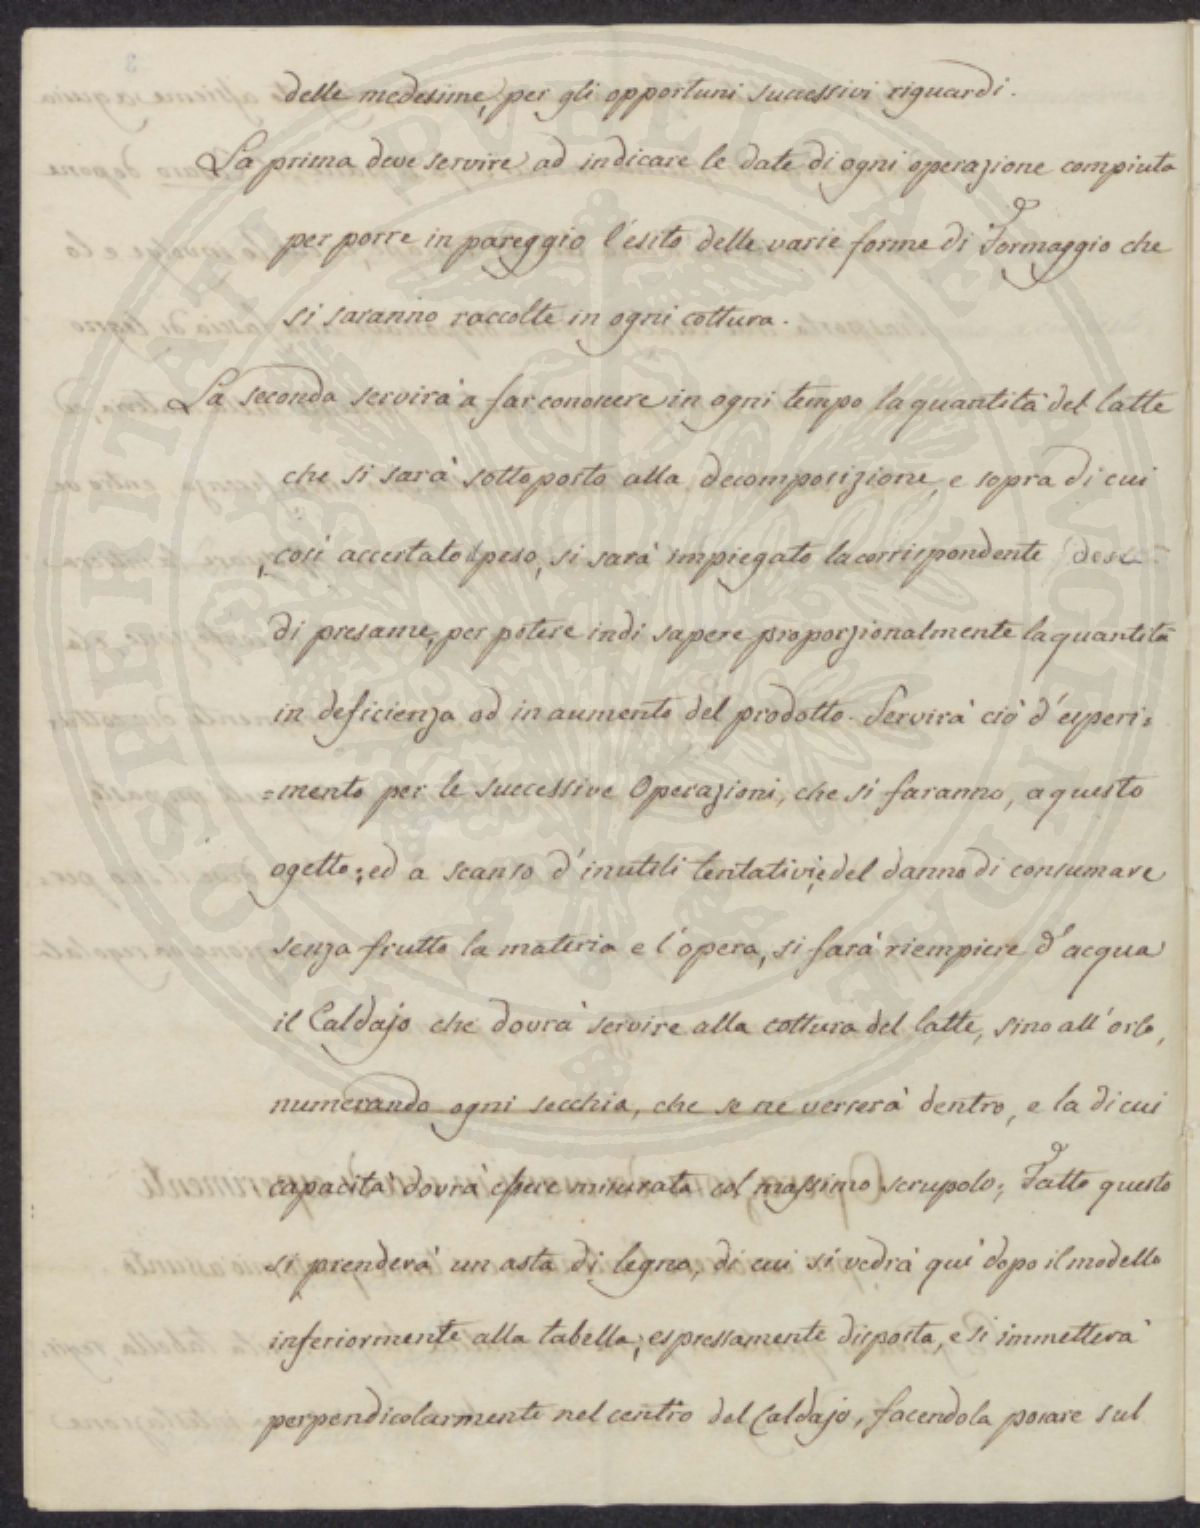 delle medesime, per gli opportuni successivi riguardi.
La prima deve servire ad indicare le date di ogni operazione compiuta
per porre in pareggio l'esito delle varie forme di Formaggio che
si saranno raccolte in ogni cottura.
La seconda servirà a far conoscere in ogni tempo la quantità del latte
che si sarà sottoposto alla decomposizione, e sopra di cui
così accertato peso, si sarà impiegato la corrispondente
di presame, per potere indi sapere proporzionalmente la quantità
in deficienza od in aumento del prodotto. Servirà ciò d'esperi=
=mento per le successive Operazioni, che si faranno, a questo
ogetto; ed a scanso d'inutili tentativi, e del danno di consumare
senza frutto la materia e l'opera, si farà riempiere d'acqua
il Caldajo che dovrà servire alla cottura del latte, sino all'orlo,
numerando ogni secchia, che se ne verserà dentro, e la di cui
capacità dovrà essere misurata col massimo scrupolo; Fatto questo
si prenderà un asta di legno, di cui si vedrà quì dopo il modello
inferiormente alla tabella, espressamente disposta, e si immetterà
perpendicolarmente nel centro del Caldajo, facendola posare sul